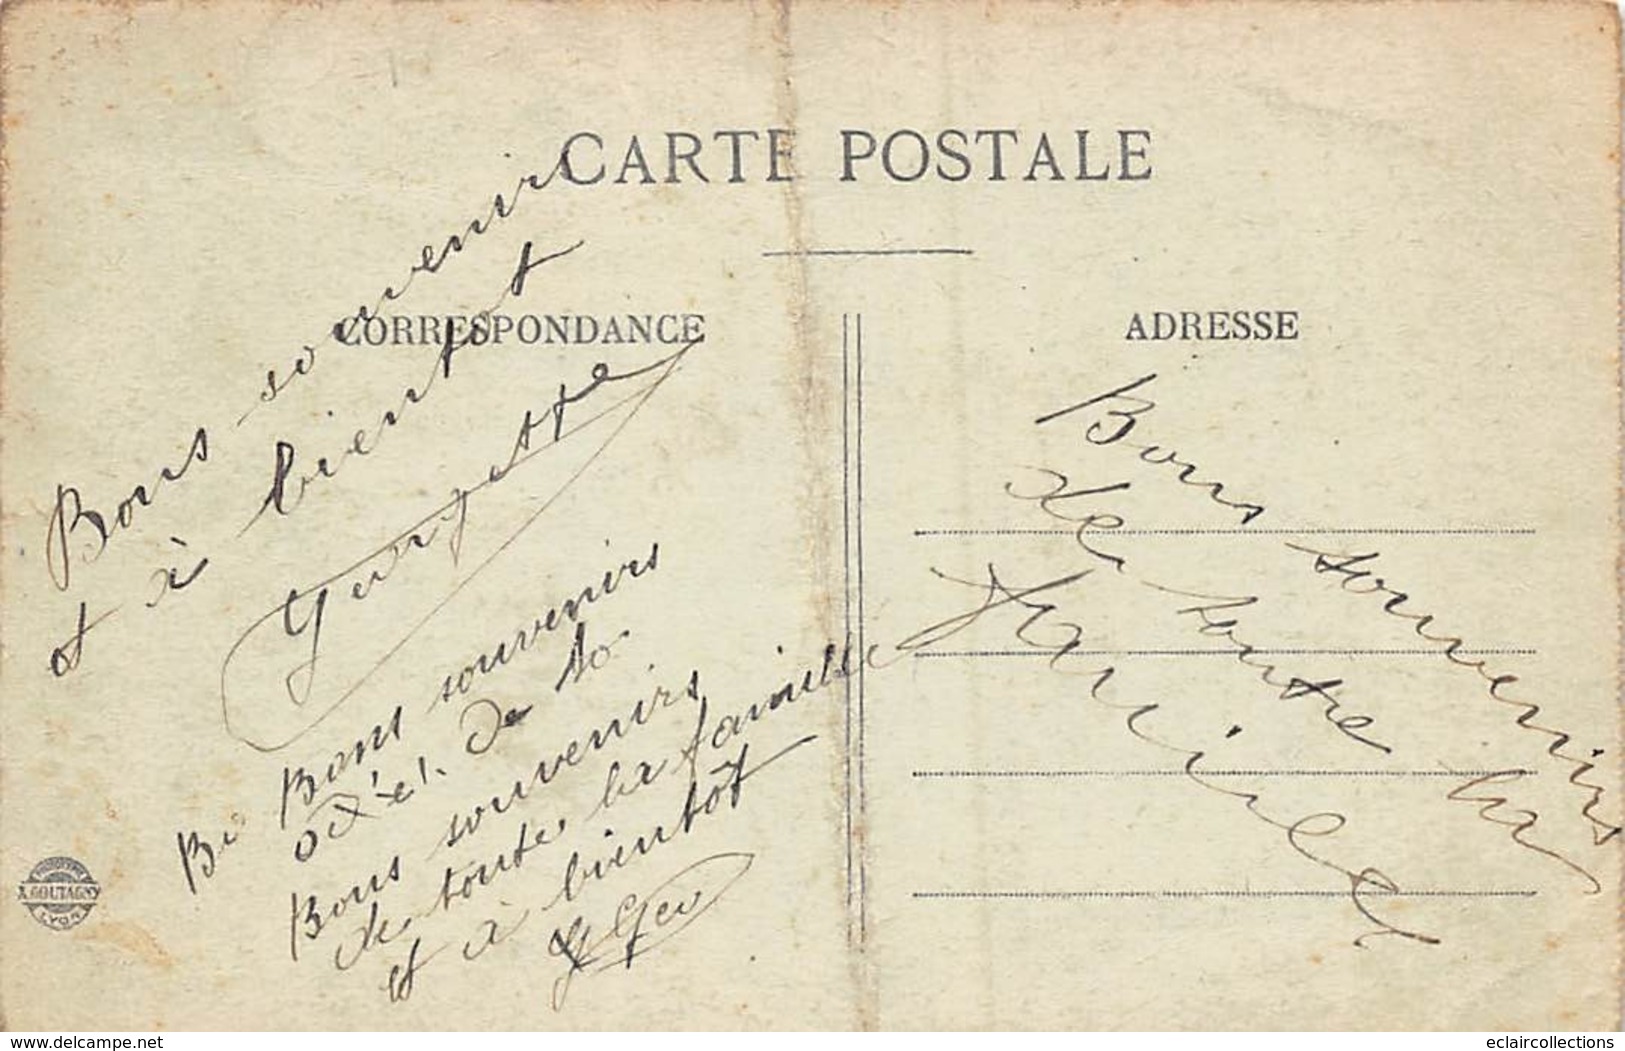 CARTE POSTALE
CORRESPONDANCE
ADRESSE
Bons souvenirs
et à bientot
Georgette
Bons souvenirs
de to
Bons souvenirs
de toute la famille
et à bientôt
Geo
Bons souvenirs
de toute la
famille
A. GOUTAGNY
LYON
www.delcampe.net
eclaircollections